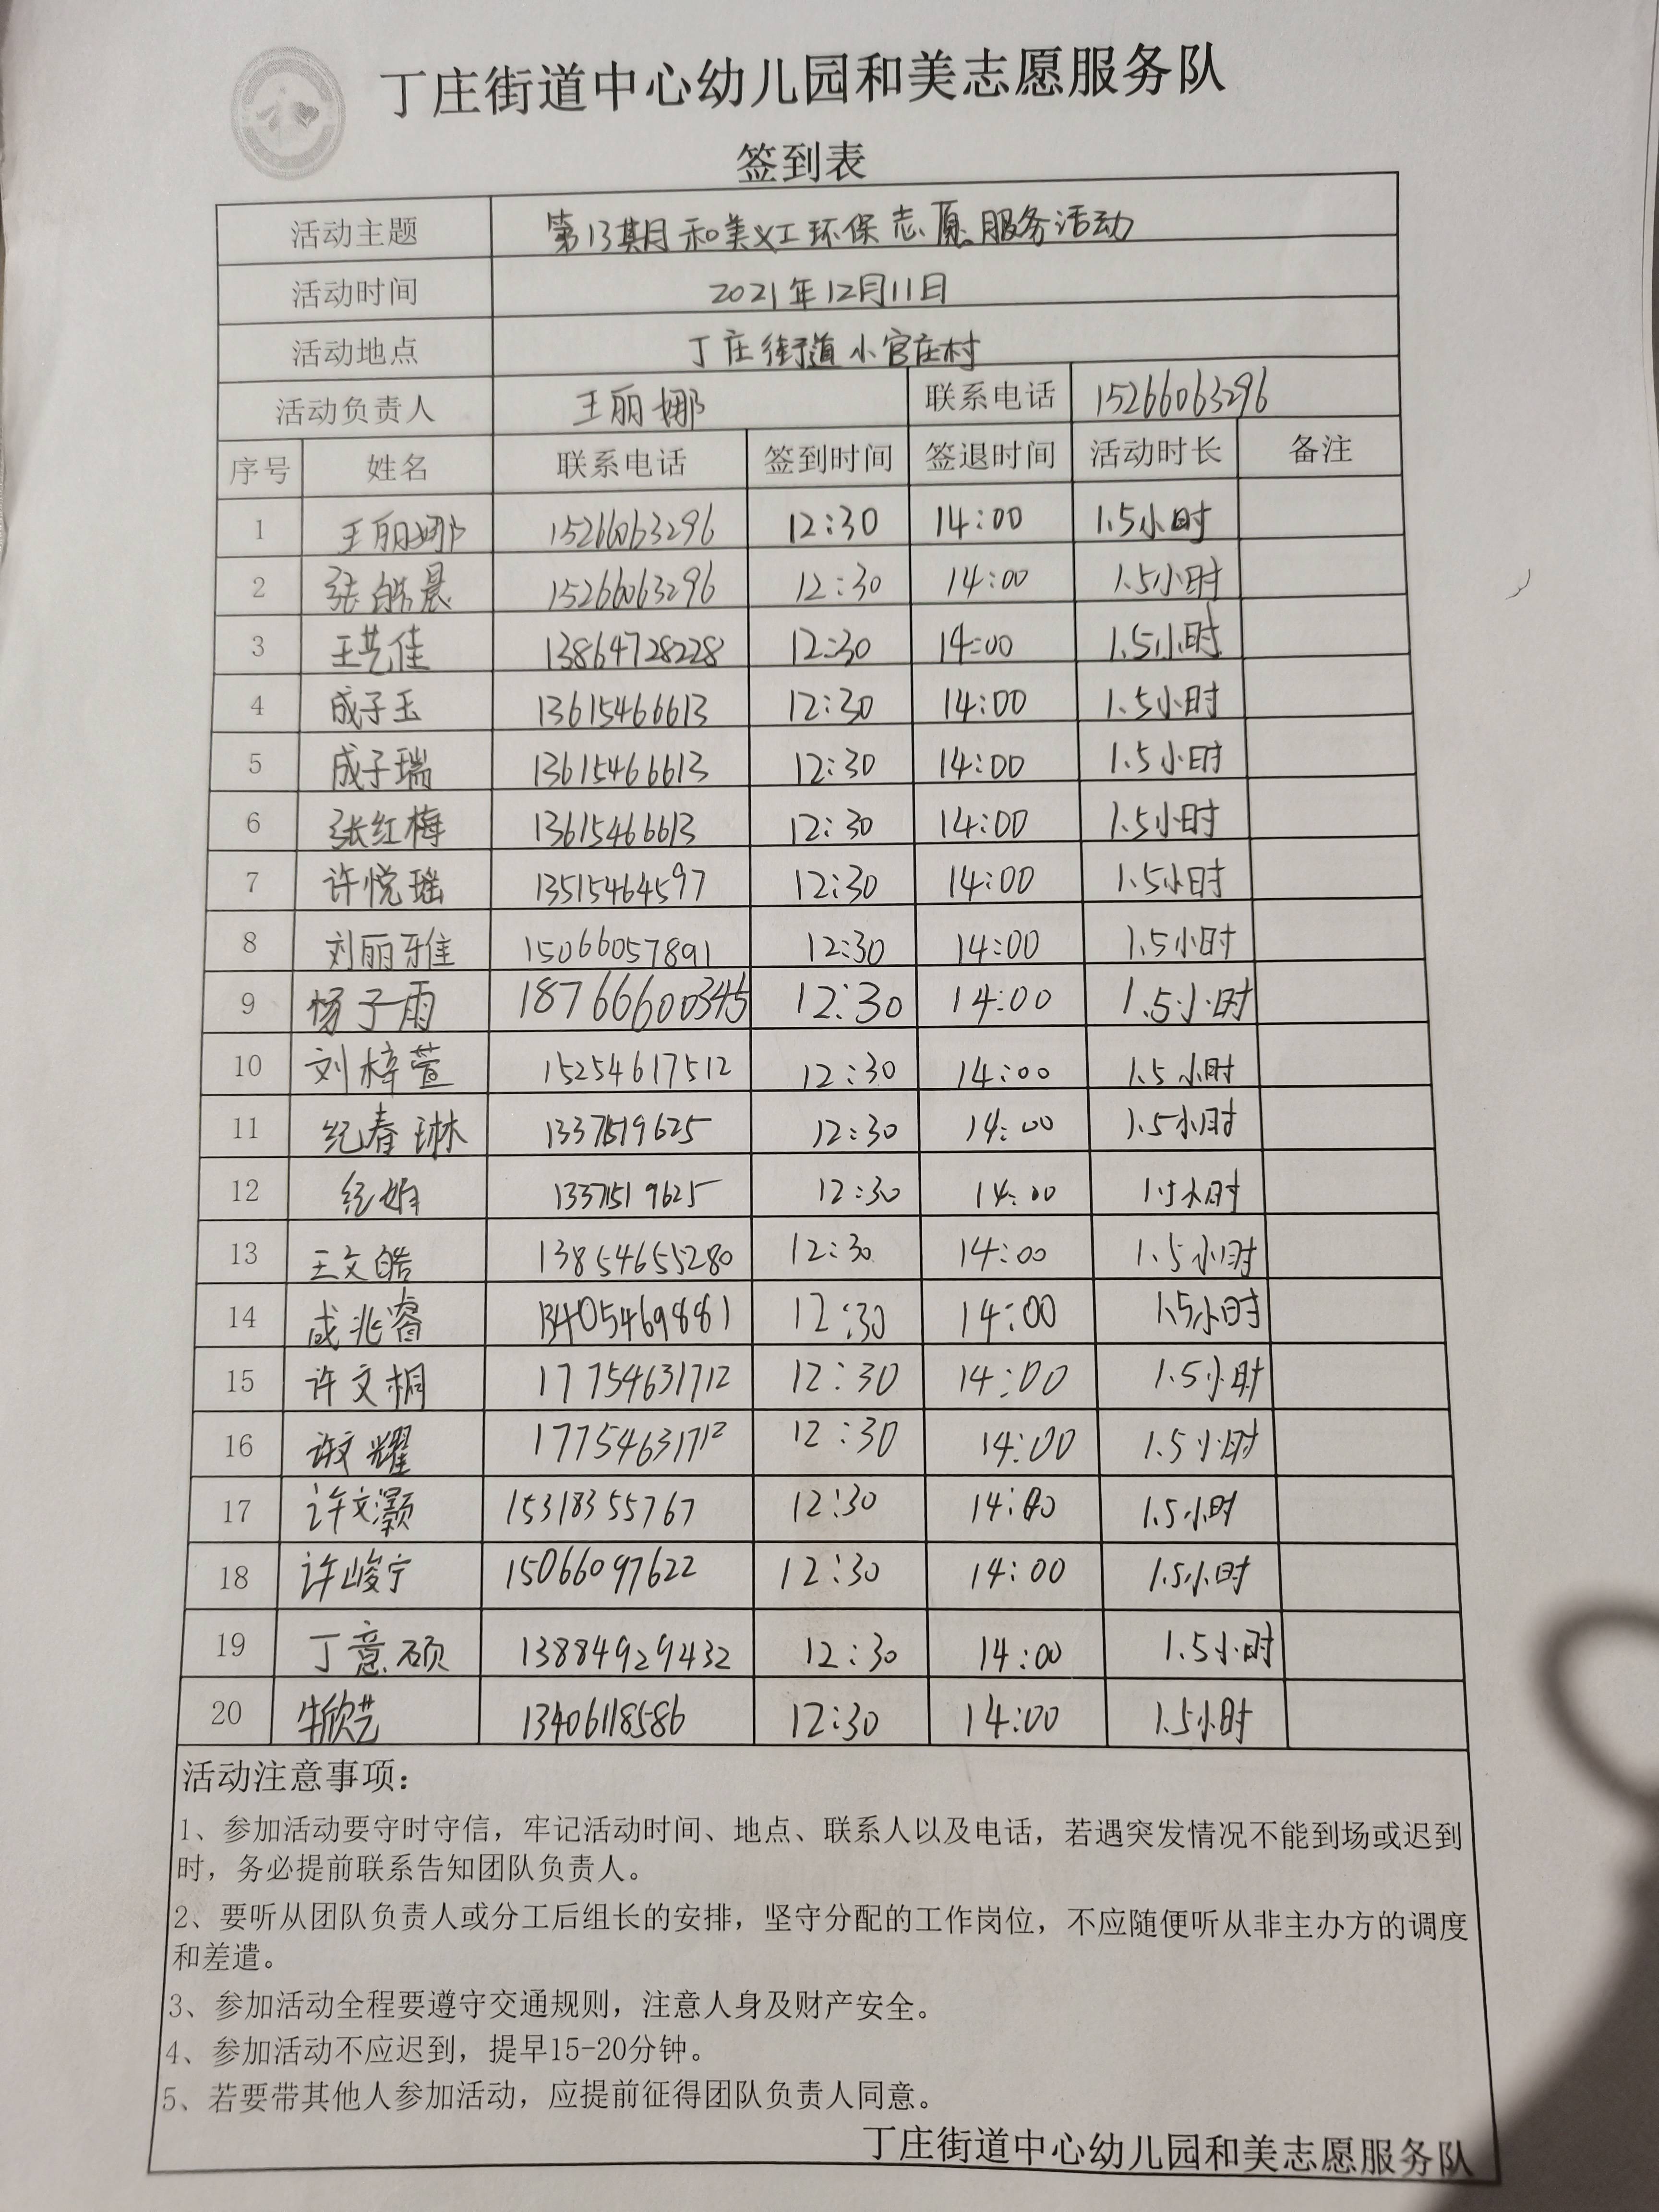 丁庄街道中心幼儿园和美志愿服务队
签到表
活动主题 第13期和美义工环保志愿服务活动
活动时间 2021年12月11日
活动地点 丁庄街道小官庄村
活动负责人 王丽娜 联系电话 15266063296
序号 姓名 联系电话 签到时间 签退时间 活动时长 备注
1 王丽娜 15266063296 12:30 14:00 1.5小时
2 张皓晨 15266063296 12:30 14:00 1.5小时
3 王艺佳 13864728228 12:30 14:00 1.5小时
4 成子玉 13615466613 12:30 14:00 1.5小时
5 成子瑞 13615466613 12:30 14:00 1.5小时
6 张红梅 13615466613 12:30 14:00 1.5小时
7 许悦瑶 13515464597 12:30 14:00 1.5小时
8 刘丽雅 15066057891 12:30 14:00 1.5小时
9 杨子雨 18766600345 12:30 14:00 1.5小时
10 刘梓萱 15254617512 12:30 14:00 1.5小时
11 纪春琳 13371519625 12:30 14:00 1.5小时
12 纪娟 13371519625 12:30 14:00 1.5小时
13 王文皓 13854655280 12:30 14:00 1.5小时
14 成兆睿 13405469881 12:30 14:00 1.5小时
15 许文桐 17754631712 12:30 14:00 1.5小时
16 许文耀 17754631712 12:30 14:00 1.5小时
17 许文灏 15318355767 12:30 14:00 1.5小时
18 许峻宁 15066097622 12:30 14:00 1.5小时
19 丁意硕 13884929432 12:30 14:00 1.5小时
20 牛欣艺 13406118586 12:30 14:00 1.5小时
活动注意事项：
1、参加活动要守时守信，牢记活动时间、地点、联系人以及电话，若遇突发情况不能到场或迟到
时，务必提前联系告知团队负责人。
2、要听从团队负责人或分工后组长的安排，坚守分配的工作岗位，不应随便听从非主办方的调度
和差遣。
3、参加活动全程要遵守交通规则，注意人身及财产安全。
4、参加活动不应迟到，提早15-20分钟。
5、若要带其他人参加活动，应提前征得团队负责人同意。
丁庄街道中心幼儿园和美志愿服务队